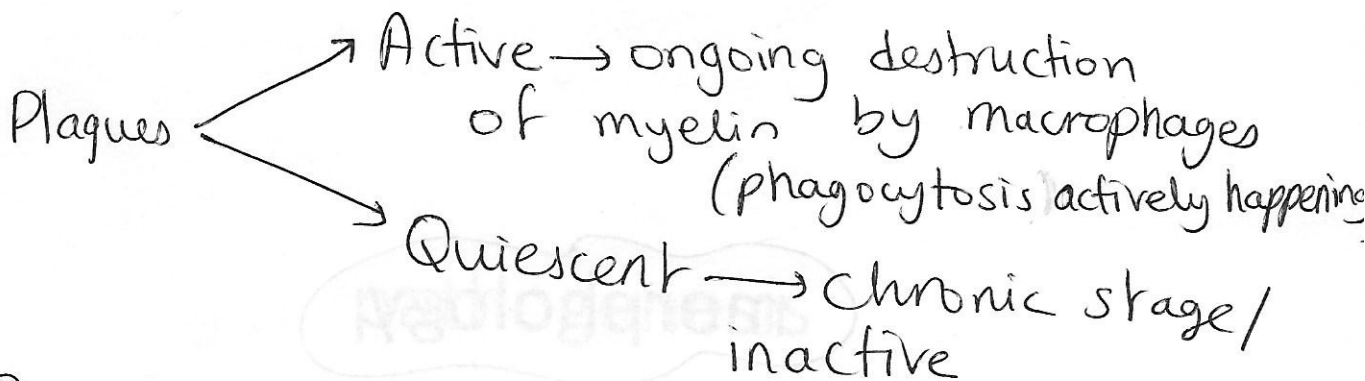 Plaques
Active → ongoing destruction
of myelin by macrophages
(phagocytosis actively happening
Quiescent → chronic stage/
inactive